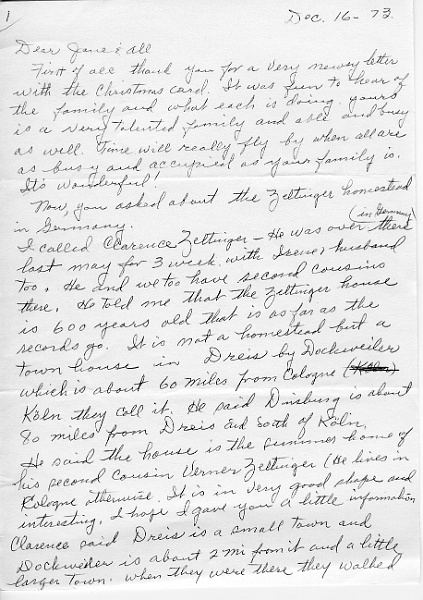 1
Dec. 16-73.
Dear Jane & all
First of all thank you for a very newsy letter
with the Christmas card. It was fun to hear of
the family and what each is doing. yours
is a very talented family and able and busy
as well. Time will really fly by when all are
as busy and occupied as your family is.
It's wonderful!
Now, you asked about the Zeltinger homestead
in Germany. (in Germany)
I called Clarence Zeltinger - He was over there
last may for 3 week. with Irene, husband
too. He and we too have second cousins
there. He told me that the Zeltinger house
is 600 years old that is as far as the
records go. It is not a homestead but a
town house in Dreis by Dockweiler
which is about 60 miles from Cologne
Köln they call it. He said Duisburg is about
80 miles from Dreis and South of Köln.
He said the house is the summer home of
his second cousin Verner Zeltinger (He lives in
Cologne otherwise. It is in very good shape and
interesting. I hope I gave you a little information
Clarence said Dreis is a small town and
Dockweiler is about 2 mi from it and a little
larger town. when they were there they walked